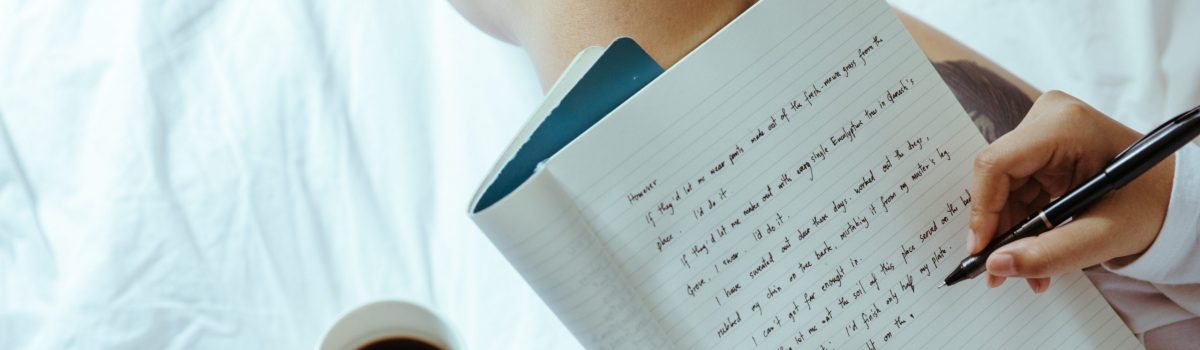 However
If they'd let me wear pants made out of the fresh-mown grass from the
place. I'd do it.
If they'd let me make out with every single Eucalyptus tree in Stanach's
Grove, I swear. I'd do it.
I have sweated out dew these days. worked out the dregs,
Rubbed my chin on tree bark, mistaking it from my master's leg.
I can't get far enough in.
lot me eat the soil of this place served on the bad
I'd finish only half my plate.
on the